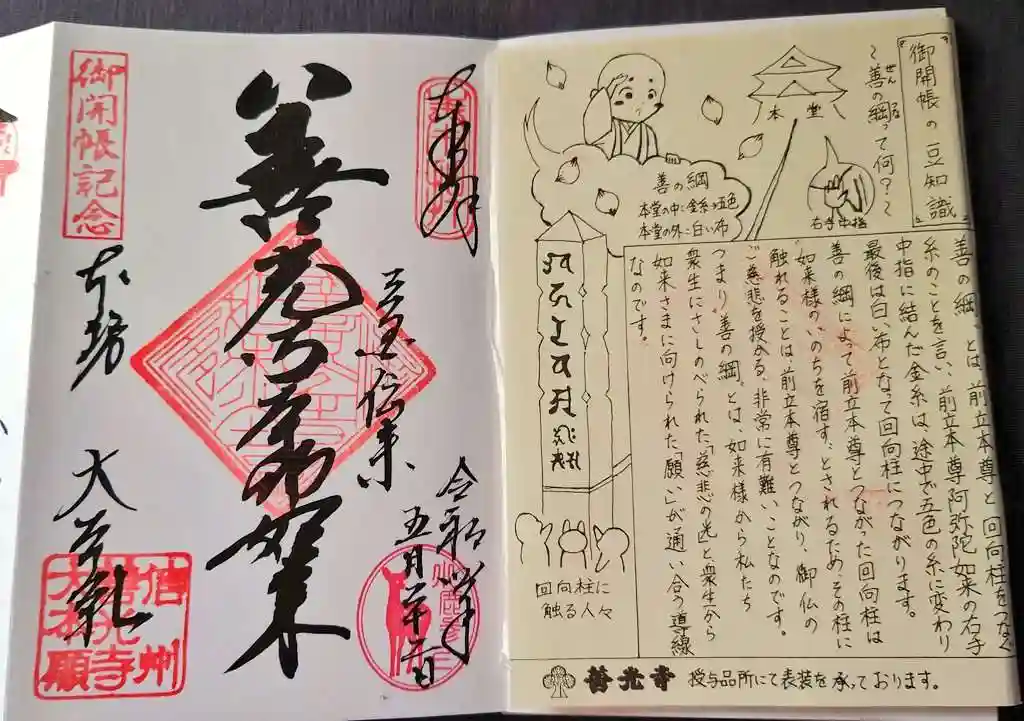 御開帳の豆知識
~善の綱って何?~
本堂
右手中指
善の綱
本堂の中:金糸→五色
本堂の外:白い布
善の綱、とは、前立本尊と回向柱をつなぐ
糸のことを言い、前立本尊阿弥陀如来の右手
中指に結んだ金糸は、途中で五色の糸に変わり
最後は白い布となって回向柱につながります。
善の綱によって前立本尊とつながった回向柱は
"如来様のいのちを宿す"とされるため、その柱に
触れることは、前立本尊とつながり、御仏の
ご慈悲を授かる、非常に有難いことなのです。
つまり"善の綱"とは、如来様から私たち
衆生にさしのべられた「慈悲の光」と衆生から
如来さまに向けられた「願い」が通い合う導線
なのです。
回向柱に
触る人々
善光寺 授与品所にて表装を承っております。
奉拝
伝来
令和
五月
御開帳記念
本坊
大本願
信州
善光寺
大本願